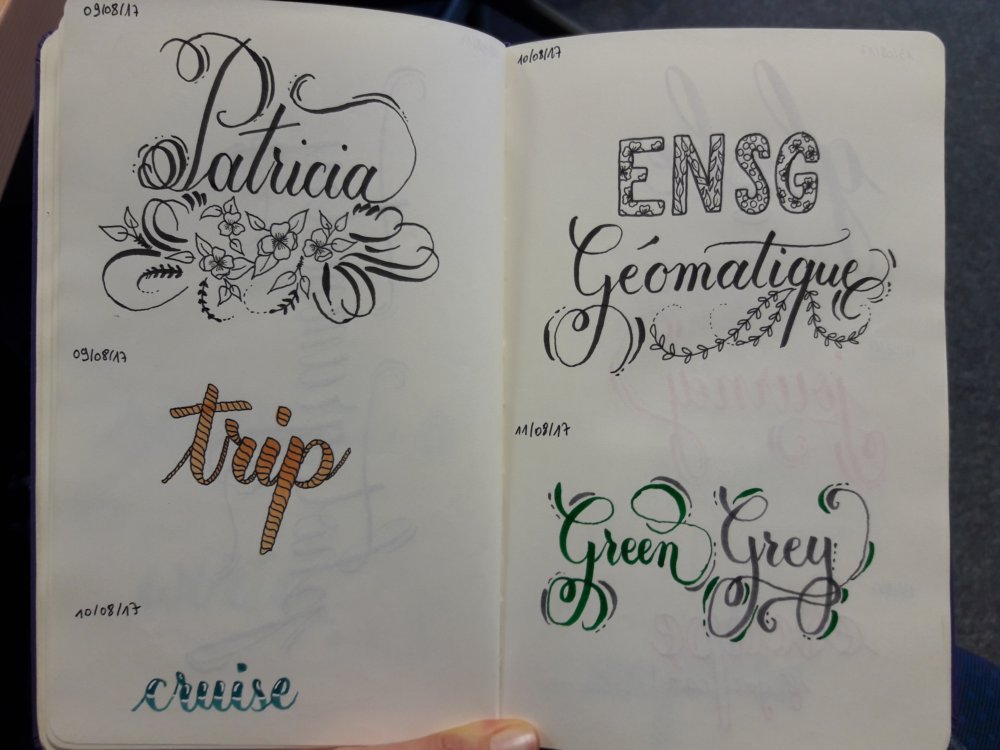 09/08/17
Patricia
09/08/17
trip
10/08/17
cruise
10/08/17
ENSG
Géomatique
11/08/17
Green Grey
journey